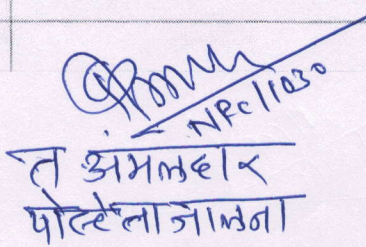 NPC/1030
त अंमलदार
पोस्टे ला जालना